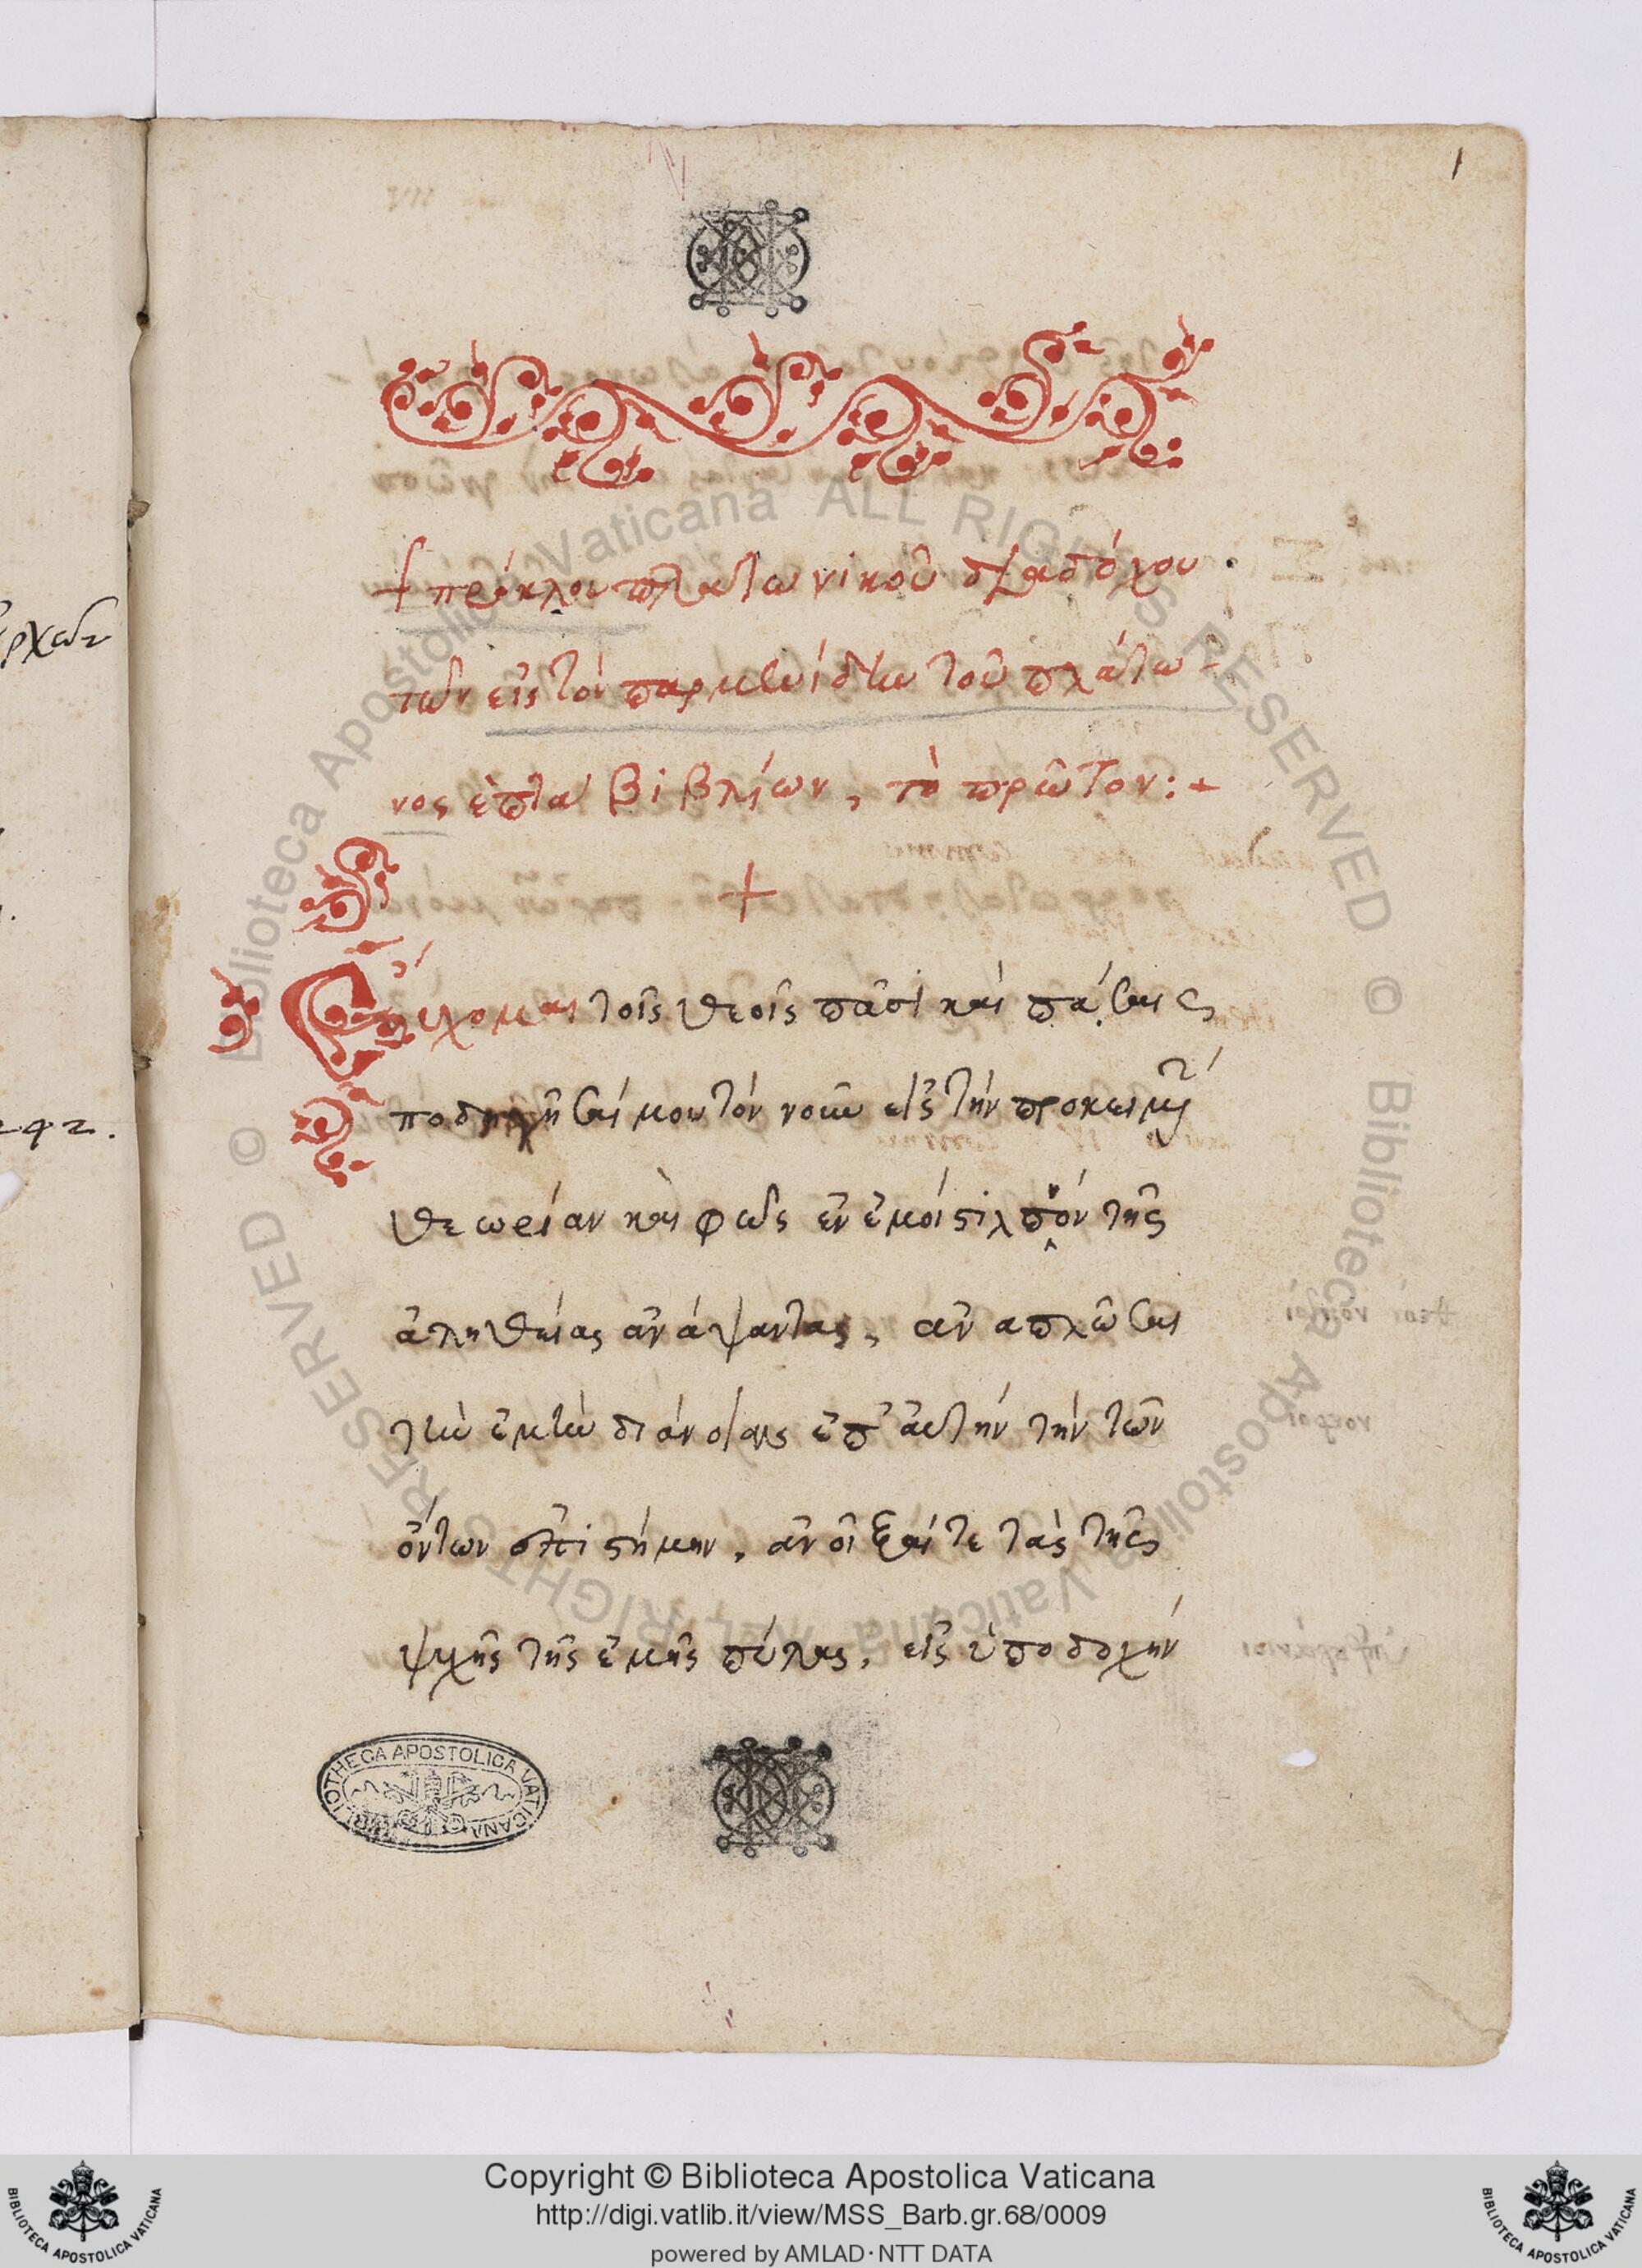 1
+ πρόκλου πλατωνικοῦ διαδόχου .
τῶν εἰς τὸν παρμενίδην τοῦ πλάτω-
νος ἑπτὰ βιβλίων, τὸ πρῶτον :+
+
Εὔχομαι τοῖς θεοῖς πᾶσι καὶ πάσαις
ποδηγῆσαί μου τὸν νοῦν εἰς τὴν προκειμένην
θεωρίαν καὶ φῶς ἐν ἐμοὶ στιλπνὸν τῆς
ἀληθείας ἀνάψαντας, ἀναπλῶσαι
τὴν ἐμὴν διάνοιαν ἐπ' αὐτὴν τὴν τῶν
ὄντων ἐπιστήμην, ἀνοῖξαί τε τὰς τῆς
ψυχῆς τῆς ἐμῆς πύλας, εἰς ὑποδοχήν
BIBLIOTHECA APOSTOLICA VATICANA
© Biblioteca Apostolica Vaticana ALL RIGHTS RESERVED © Biblioteca Apostolica Vaticana ALL RIGHTS RESERVED
Copyright © Biblioteca Apostolica Vaticana
http://digi.vatlib.it/view/MSS_Barb.gr.68/0009
powered by AMLAD·NTT DATA
BIBLIOTECA APOSTOLICA VATICANA
BIBLIOTECA APOSTOLICA VATICANA